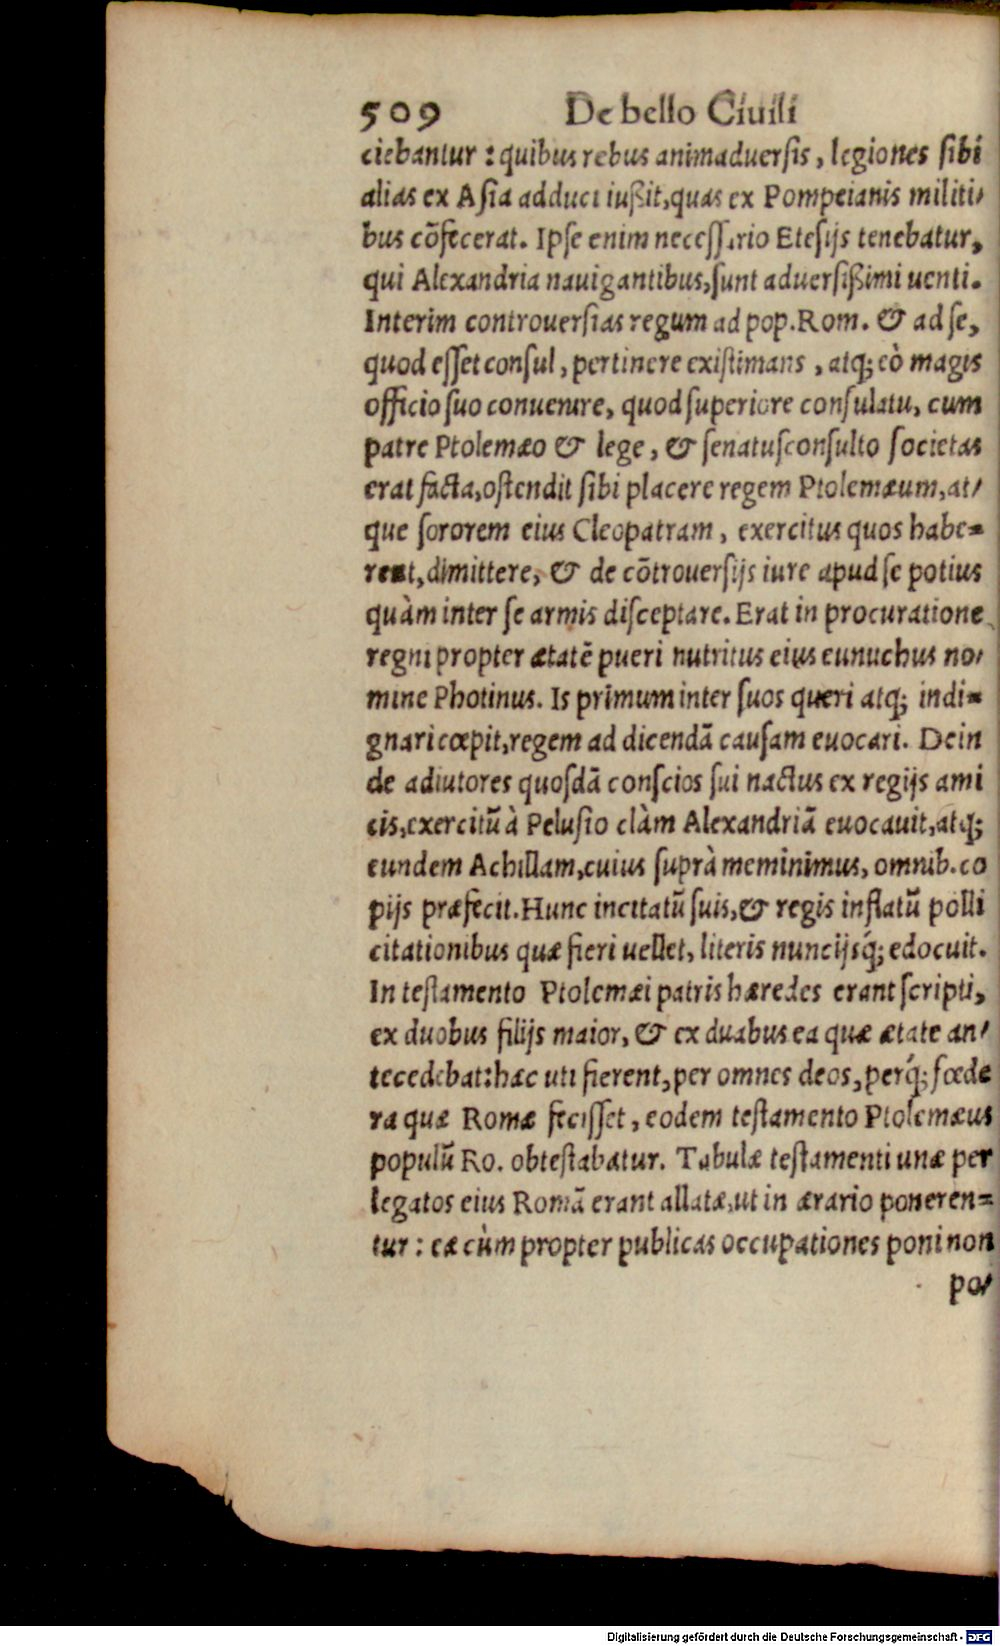 509 De bello Ciuili
ciebantur : quibus rebus animaduersis, legiones sibi
alias ex Asia adduci iußit, quas ex Pompeianis militi/
bus cõfecerat. Ipse enim necessario Etesijs tenebatur,
qui Alexandria nauigantibus, sunt aduersißimi uenti.
Interim controuersias regum ad pop. Rom. & ad se,
quod esset consul, pertinere existimans , atq; eò magis
officio suo conuenire, quod superiore consulatu, cum
patre Ptolemæo & lege, & senatusconsulto societas
erat facta, ostendit sibi placere regem Ptolemæum, at/
que sororem eius Cleopatram , exercitus quos habe=
rent, dimittere, & de cõtrouersijs iure apud se potius
quàm inter se armis disceptare. Erat in procuratione
regni propter ætatẽ pueri nutritus eius eunuchus no/
mine Photinus. Is primum inter suos queri atq; indi=
gnari cœpit, regem ad dicendã causam euocari. Dein
de adiutores quosdã conscios sui nactus ex regijs ami
cis, exercitũ à Pelusio clàm Alexandriã euocauit, atq;
eundem Achillam, cuius suprà meminimus, omnib. co
pijs præfecit. Hunc incitatũ suis, & regis inflatũ polli
citationibus quæ fieri uellet, literis nuncijsq́; edocuit.
In testamento Ptolemæi patris hæredes erant scripti,
ex duobus filijs maior, & ex duabus ea quæ ætate an/
tecedebat: hæc uti fierent, per omnes deos, perq́; fœde
ra quæ Romæ fecisset, eodem testamento Ptolemæus
populũ Ro. obtestabatur. Tabulæ testamenti unæ per
legatos eius Romã erant allatæ, ut in ærario poneren=
tur : eæ cùm propter publicas occupationes poni non
po/
Digitalisierung gefördert durch die Deutsche Forschungsgemeinschaft - DFG